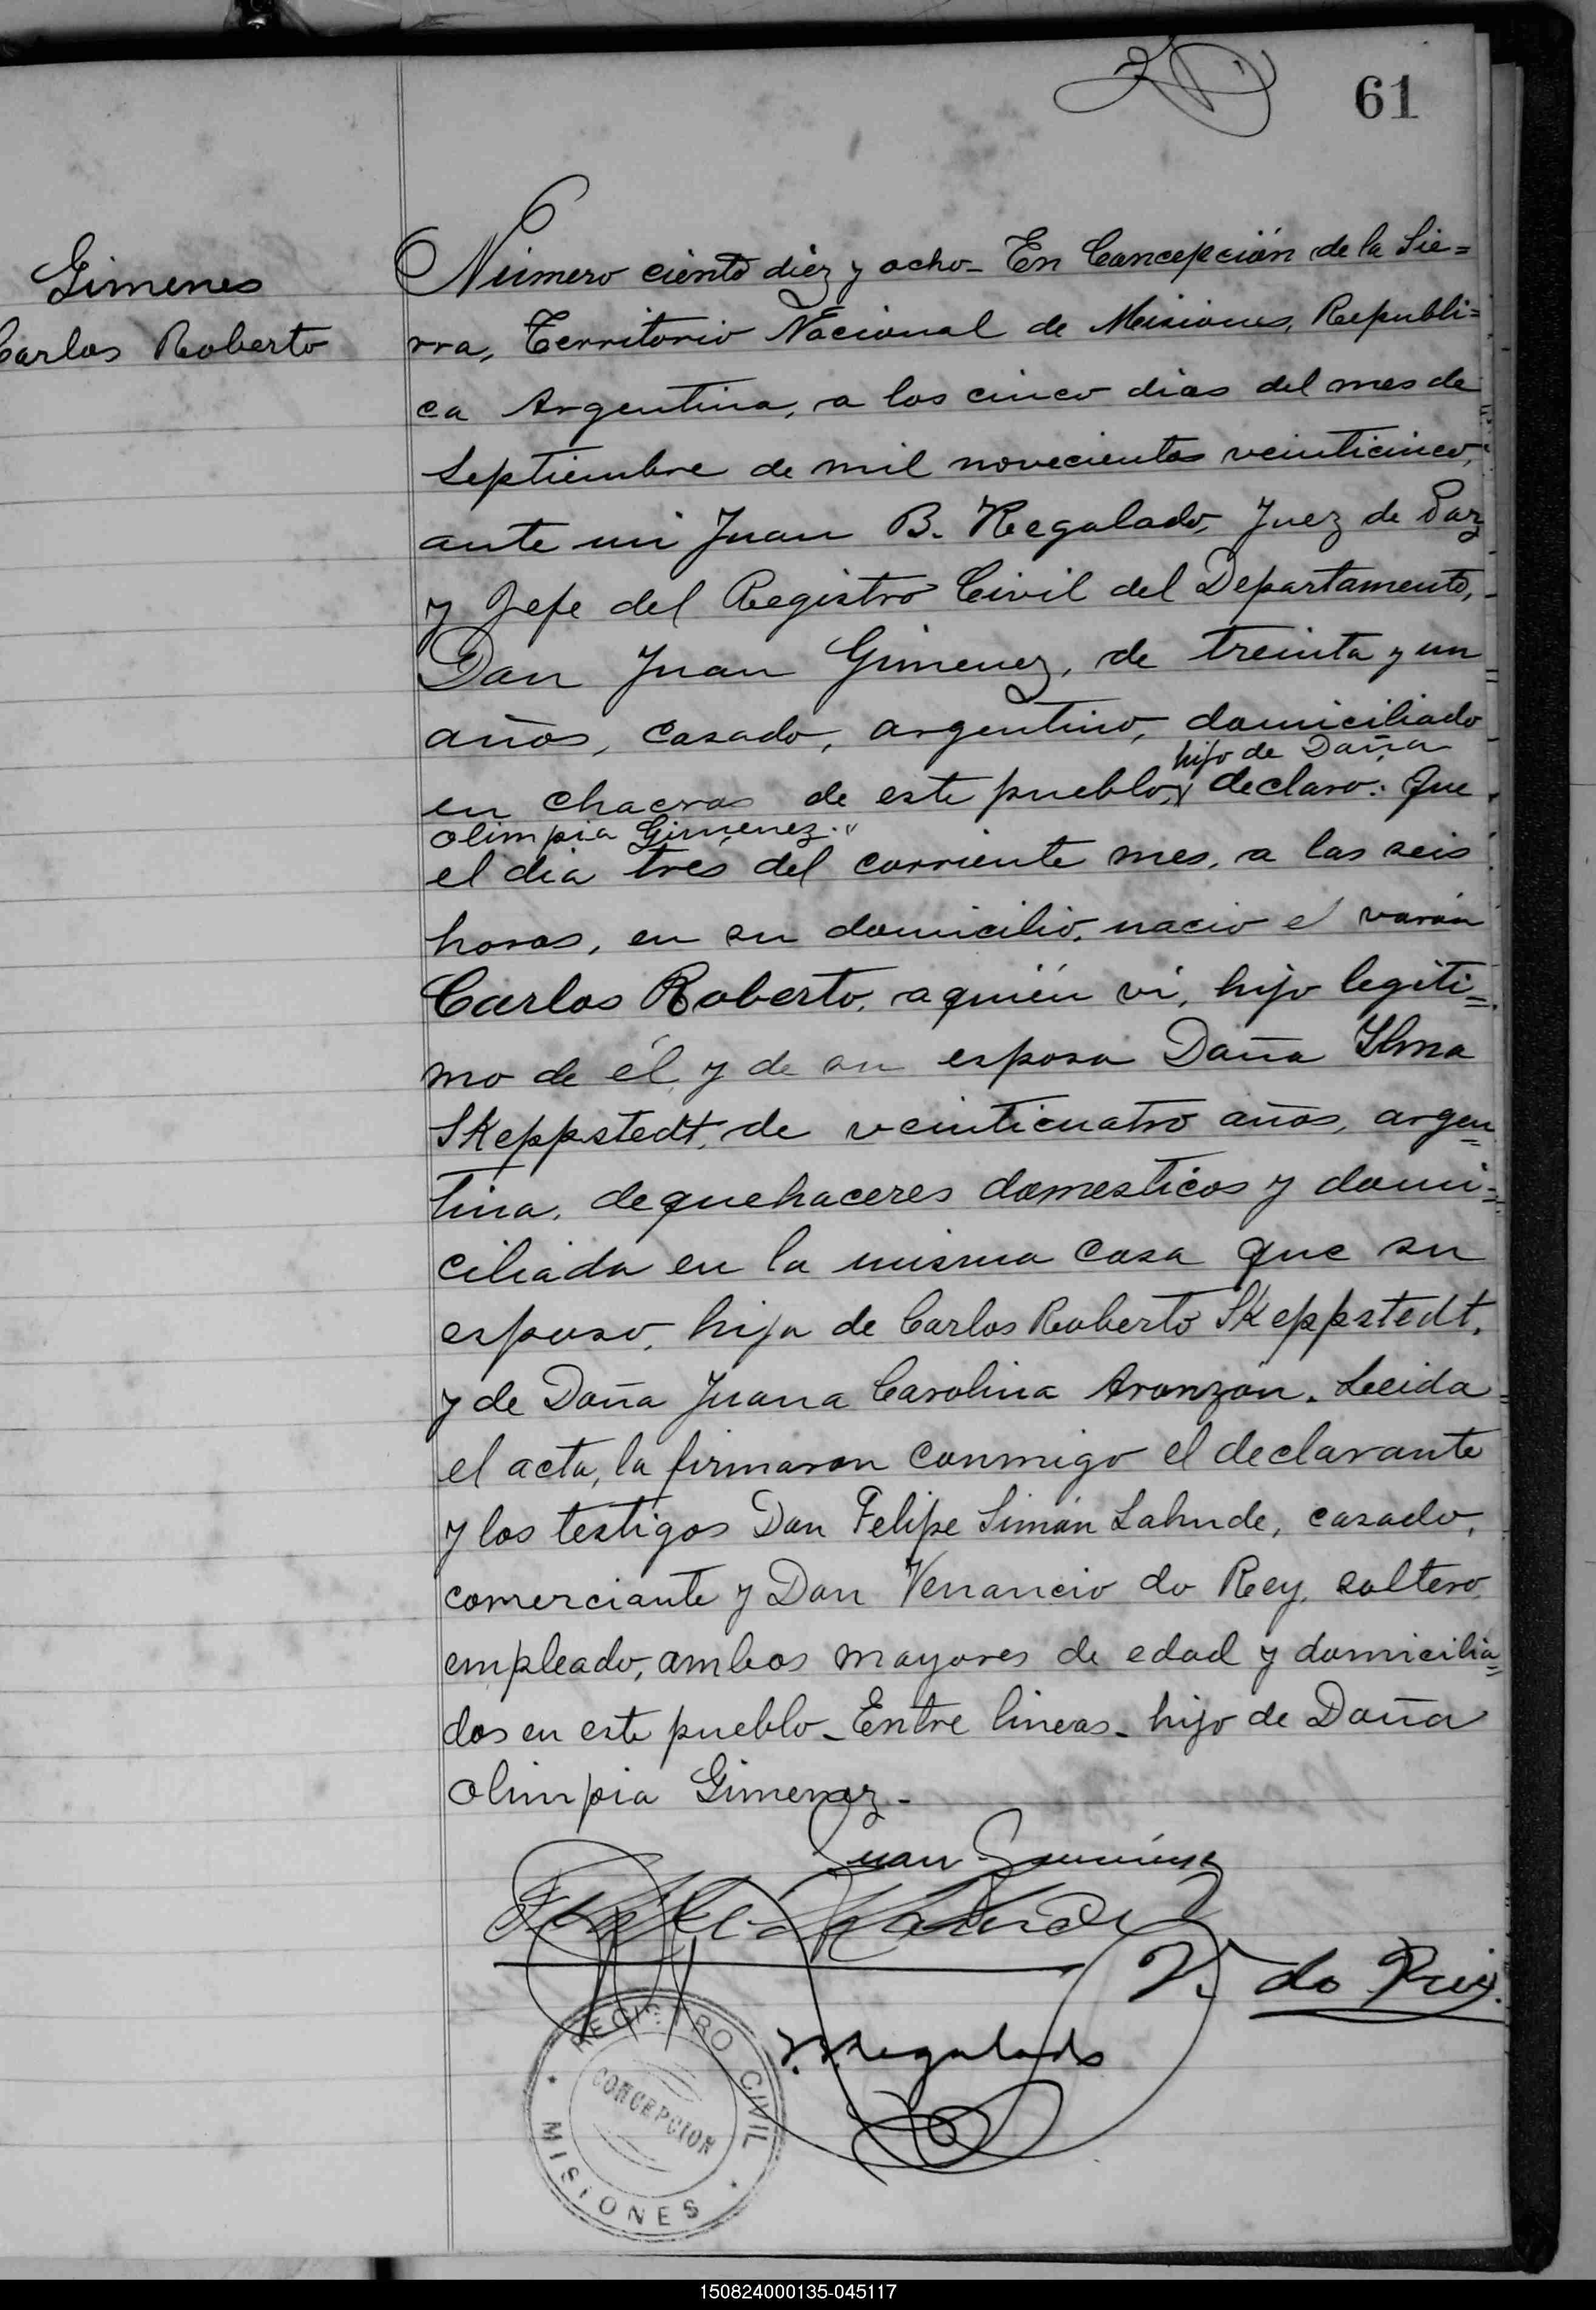 61
Gimenes
Carlos Roberto
Número ciento diez y ocho_ En Concepción de la Sie=
rra, Territorio Nacional de Misiones, Republi=
ca Argentina, a los cinco dias del mes de
Septiembre de mil novecientos veinticinco,
ante mi Juan B. Regalado, Juez de Paz
y Jefe del Registro Civil del Departamento,
Don Juan Gimenez, de treinta y un
años, casado, argentino, domiciliado
hijo de Doña
en chacras de este pueblo, declaro: Que
Olimpia Gimenez."
el dia tres del corriente mes, a las seis
horas, en su domicilio, nacio el varón
Carlos Roberto, a quién vi, hijo legiti=
mo de él y de su esposa Doña Ilma
Skeppstedt, de veinticuatro años, argen=
tina, de quehaceres domesticos y domi=
ciliada en la misma casa que su
esposo, hija de Carlos Roberto Skeppstedt,
y de Doña Juana Carolina Aranzón. Leida
el acta, la firmaron conmigo el declarante
y los testigos Don Felipe Simón Lahude, casado,
comerciante y Don Venancio do Rey, soltero,
empleado, ambos mayores de edad y domicilia=
dos en este pueblo_ Entre lineas_ hijo de Doña
Olimpia Gimenez_
Juan Giménez
V. do Rey.
J.B. Regalado
REGISTRO CIVIL
CONCEPCION
MISIONES
150824000135-045117